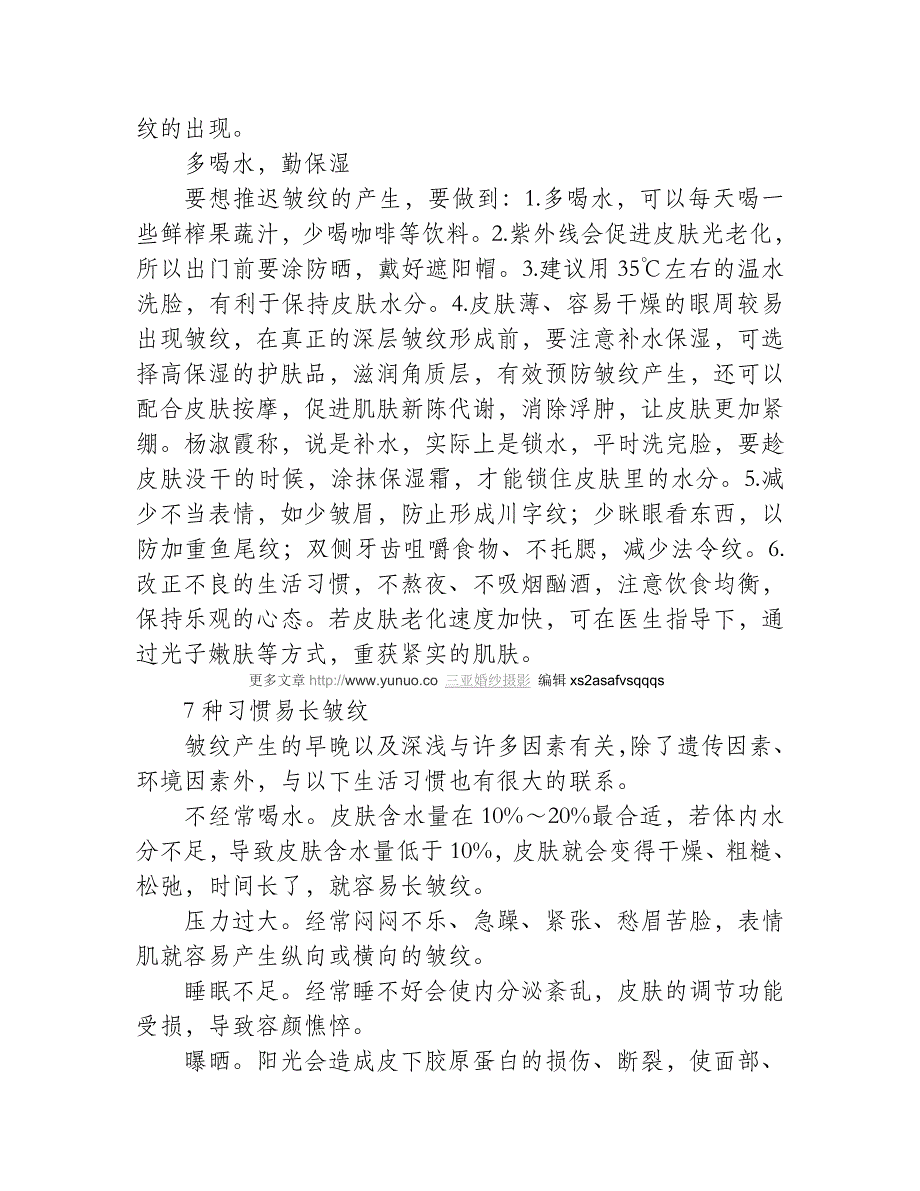 纹的出现。
多喝水，勤保湿
要想推迟皱纹的产生，要做到：1.多喝水，可以每天喝一
些鲜榨果蔬汁，少喝咖啡等饮料。2.紫外线会促进皮肤光老化，
所以出门前要涂防晒，戴好遮阳帽。3.建议用 35℃左右的温水
洗脸，有利于保持皮肤水分。4.皮肤薄、容易干燥的眼周较易
出现皱纹，在真正的深层皱纹形成前，要注意补水保湿，可选
择高保湿的护肤品，滋润角质层，有效预防皱纹产生，还可以
配合皮肤按摩，促进肌肤新陈代谢，消除浮肿，让皮肤更加紧
绷。杨淑霞称，说是补水，实际上是锁水，平时洗完脸，要趁
皮肤没干的时候，涂抹保湿霜，才能锁住皮肤里的水分。5.减
少不当表情，如少皱眉，防止形成川字纹；少眯眼看东西，以
防加重鱼尾纹；双侧牙齿咀嚼食物、不托腮，减少法令纹。6.
改正不良的生活习惯，不熬夜、不吸烟酗酒，注意饮食均衡，
保持乐观的心态。若皮肤老化速度加快，可在医生指导下，通
过光子嫩肤等方式，重获紧实的肌肤。
更多文章 http://www.yunuo.co 三亚婚纱摄影 编辑 xs2asafvsqqqs
7 种习惯易长皱纹
皱纹产生的早晚以及深浅与许多因素有关，除了遗传因素、
环境因素外，与以下生活习惯也有很大的联系。
不经常喝水。皮肤含水量在 10%～20%最合适，若体内水
分不足，导致皮肤含水量低于 10%，皮肤就会变得干燥、粗糙、
松弛，时间长了，就容易长皱纹。
压力过大。经常闷闷不乐、急躁、紧张、愁眉苦脸，表情
肌就容易产生纵向或横向的皱纹。
睡眠不足。经常睡不好会使内分泌紊乱，皮肤的调节功能
受损，导致容颜憔悴。
曝晒。阳光会造成皮下胶原蛋白的损伤、断裂，使面部、